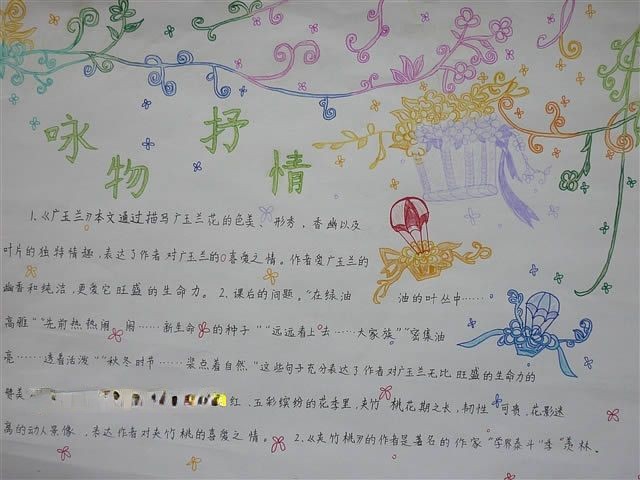 咏物抒情
1.《广玉兰》本文通过描写广玉兰花的色美、形秀,香幽以及
叶片的独特情趣,表达了作者对广玉兰的喜爱之情。作者爱广玉兰的
幽香和纯洁,更爱它旺盛的生命力。2.课后的问题。"在绿油 油的叶丛中……
高雅""先前热热闹闹……新生命的种子""远远看上去……大家族""密集油
亮……透着活泼""秋冬时节……装点着自然."这些句子充分表达了作者对广玉兰无比旺盛的生命力的
赞美 红、五彩缤纷的花季里,夹竹桃花期之长,韧性可贵,花影迷
离的动人景像,表达作者对夹竹桃的喜爱之情。2.《夹竹桃》的作者是著名的作家"学界泰斗"季羡林.